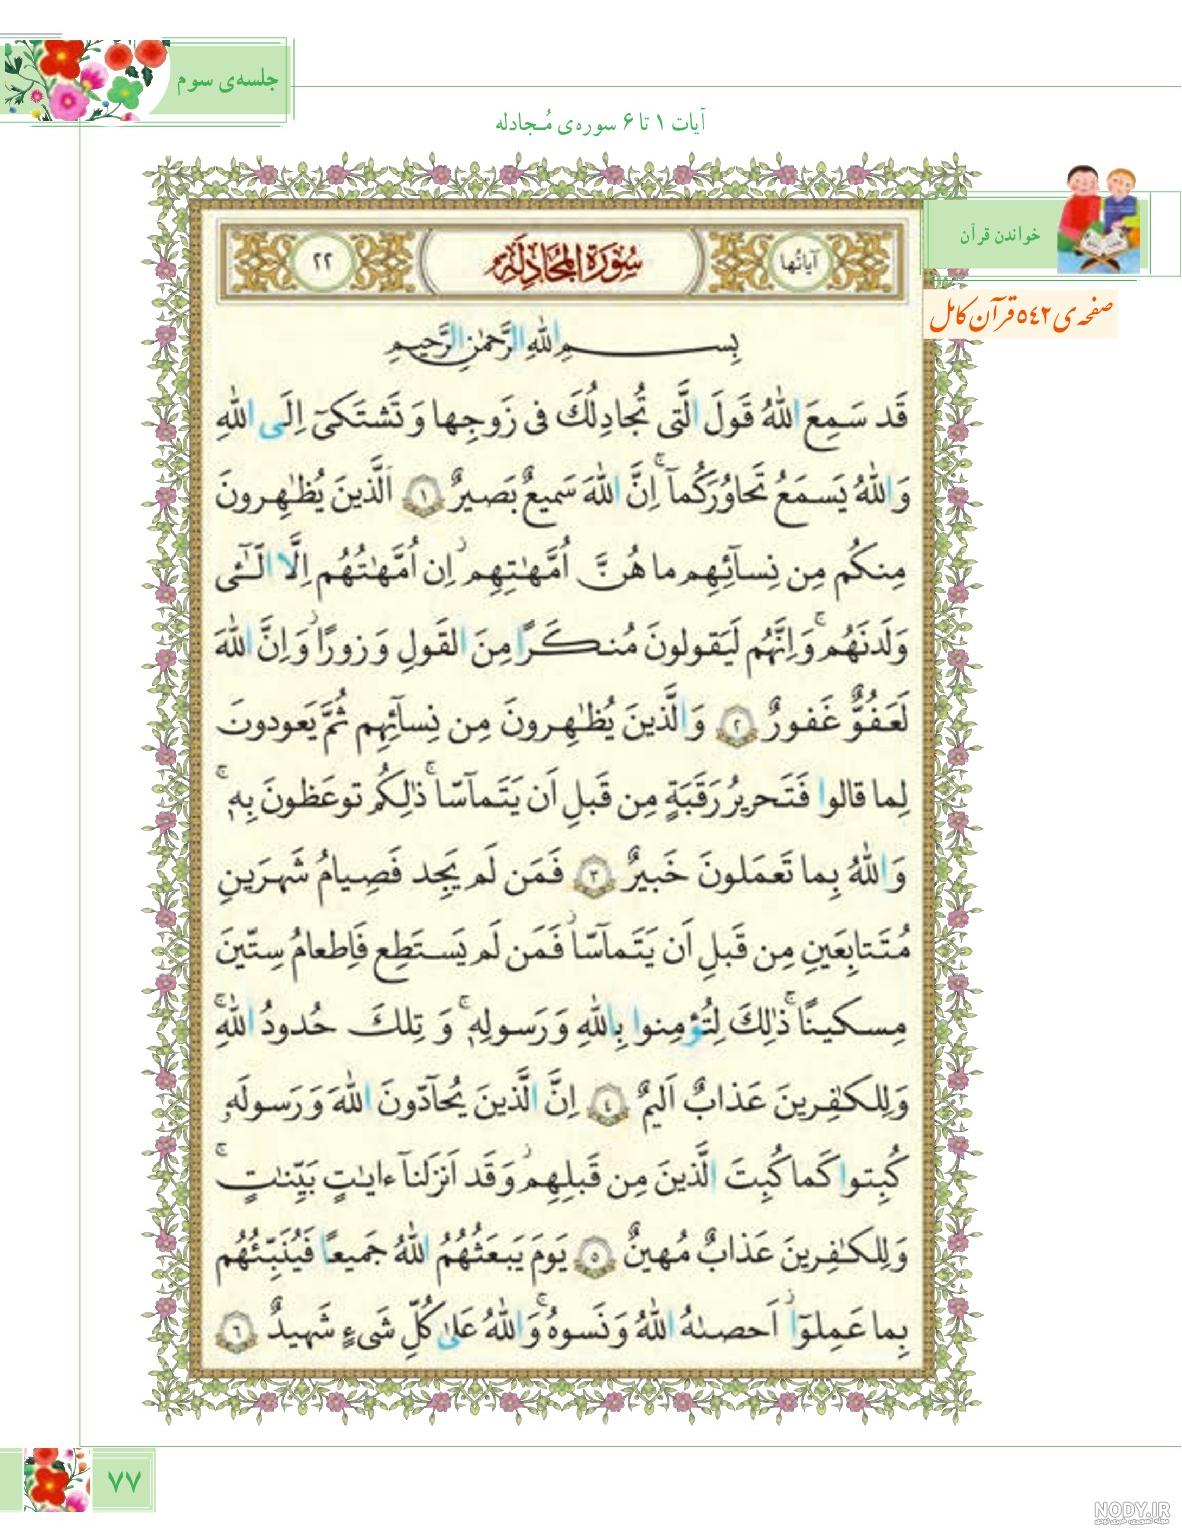 جلسه‌ی سوم
آیات ۱ تا ۶ سوره‌ی مُجادله
خواندن قرآن
صفحه‌ی ٥٤٢ قرآن کامل
آیاتُها
سُورَةُ المُجَادِلَةِ
٢٢
بِسمِ اللّٰهِ الرَّحمٰنِ الرَّحیمِ
قَد سَمِعَ اللّٰهُ قَولَ الَّتی تُجادِلُكَ فی زَوجِها وَ تَشتَکیٓ اِلَی اللّٰهِ
وَ اللّٰهُ یَسمَعُ تَحاوُرَکُمآ ۚ اِنَّ اللّٰهَ سَمیعٌ بَصیرٌ ١ اَلَّذینَ یُظٰهِرونَ
مِنکُم مِن نِسآئِهِم ما هُنَّ اُمَّهٰتِهِم ۖ اِن اُمَّهٰتُهُم اِلَّا الّٰٓئی
وَلَدنَهُم ۚ وَ اِنَّهُم لَیَقولونَ مُنکَرًا مِنَ القَولِ وَ زورًا ۚ وَ اِنَّ اللّٰهَ
لَعَفُوٌّ غَفورٌ ٢ وَ الَّذینَ یُظٰهِرونَ مِن نِسآئِهِم ثُمَّ یَعودونَ
لِما قالوا فَتَحریرُ رَقَبَةٍ مِن قَبلِ اَن یَتَمآسّا ۚ ذٰلِکُم توعَظونَ بِهٖ ۚ
وَ اللّٰهُ بِما تَعمَلونَ خَبیرٌ ٣ فَمَن لَم یَجِد فَصِیامُ شَهرَینِ
مُتَتابِعَینِ مِن قَبلِ اَن یَتَمآسّا ۖ فَمَن لَم یَستَطِع فَاِطعامُ سِتّینَ
مِسکینًا ۚ ذٰلِكَ لِتُؤمِنوا بِاللّٰهِ وَ رَسولِهٖ ۚ وَ تِلكَ حُدودُ اللّٰهِ ۗ
وَ لِلکٰفِرینَ عَذابٌ اَلیمٌ ٤ اِنَّ الَّذینَ یُحآدّونَ اللّٰهَ وَ رَسولَهٗ
کُبِتوا کَما کُبِتَ الَّذینَ مِن قَبلِهِم ۚ وَ قَد اَنزَلنآ ءایٰتٍ بَیِّنٰتٍ ۚ
وَ لِلکٰفِرینَ عَذابٌ مُهینٌ ٥ یَومَ یَبعَثُهُمُ اللّٰهُ جَمیعًا فَیُنَبِّئُهُم
بِما عَمِلوٓا ۚ اَحصٰىهُ اللّٰهُ وَ نَسوهُ ۚ وَ اللّٰهُ عَلیٰ کُلِّ شَیءٍ شَهیدٌ ٦
۷۷
NODY.IR